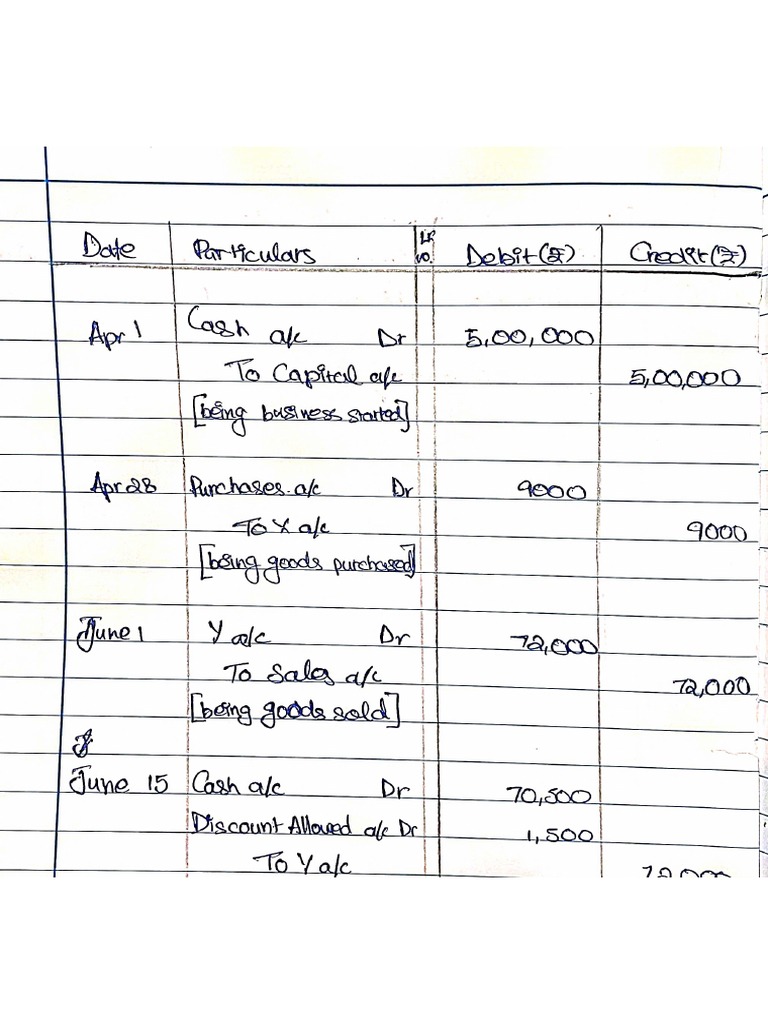 Date Particulars LF no. Debit(₹) Credit(₹)
Apr 1 Cash a/c Dr 5,00,000
To Capital a/c 5,00,000
[being business started]
Apr 28 Purchases a/c Dr 9000
To X a/c 9000
[being goods purchased]
June 1 Y a/c Dr 72,000
To Sales a/c 72,000
[being goods sold]
June 15 Cash a/c Dr 70,500
Discount Allowed a/c Dr 1,500
To Y a/c